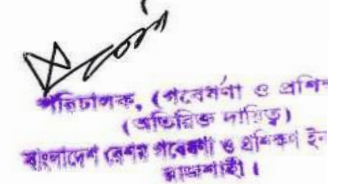 পরিচালক, (গবেষণা ও প্রশি
(অতিরিক্ত দায়িত্ব)
বাংলাদেশ রেশম গবেষণা ও প্রশিক্ষণ ইন
রাজশাহী।